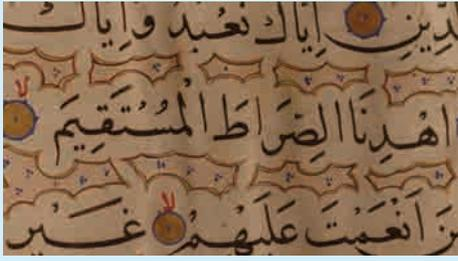 لدِّينِ إِيَّاكَ نَعْبُدُ وَإِيَّاكَ
اهْدِنَا الصِّرَاطَ الْمُسْتَقِيمَ
لا
ينَ أَنْعَمْتَ عَلَيْهِمْ لا غَيْرِ